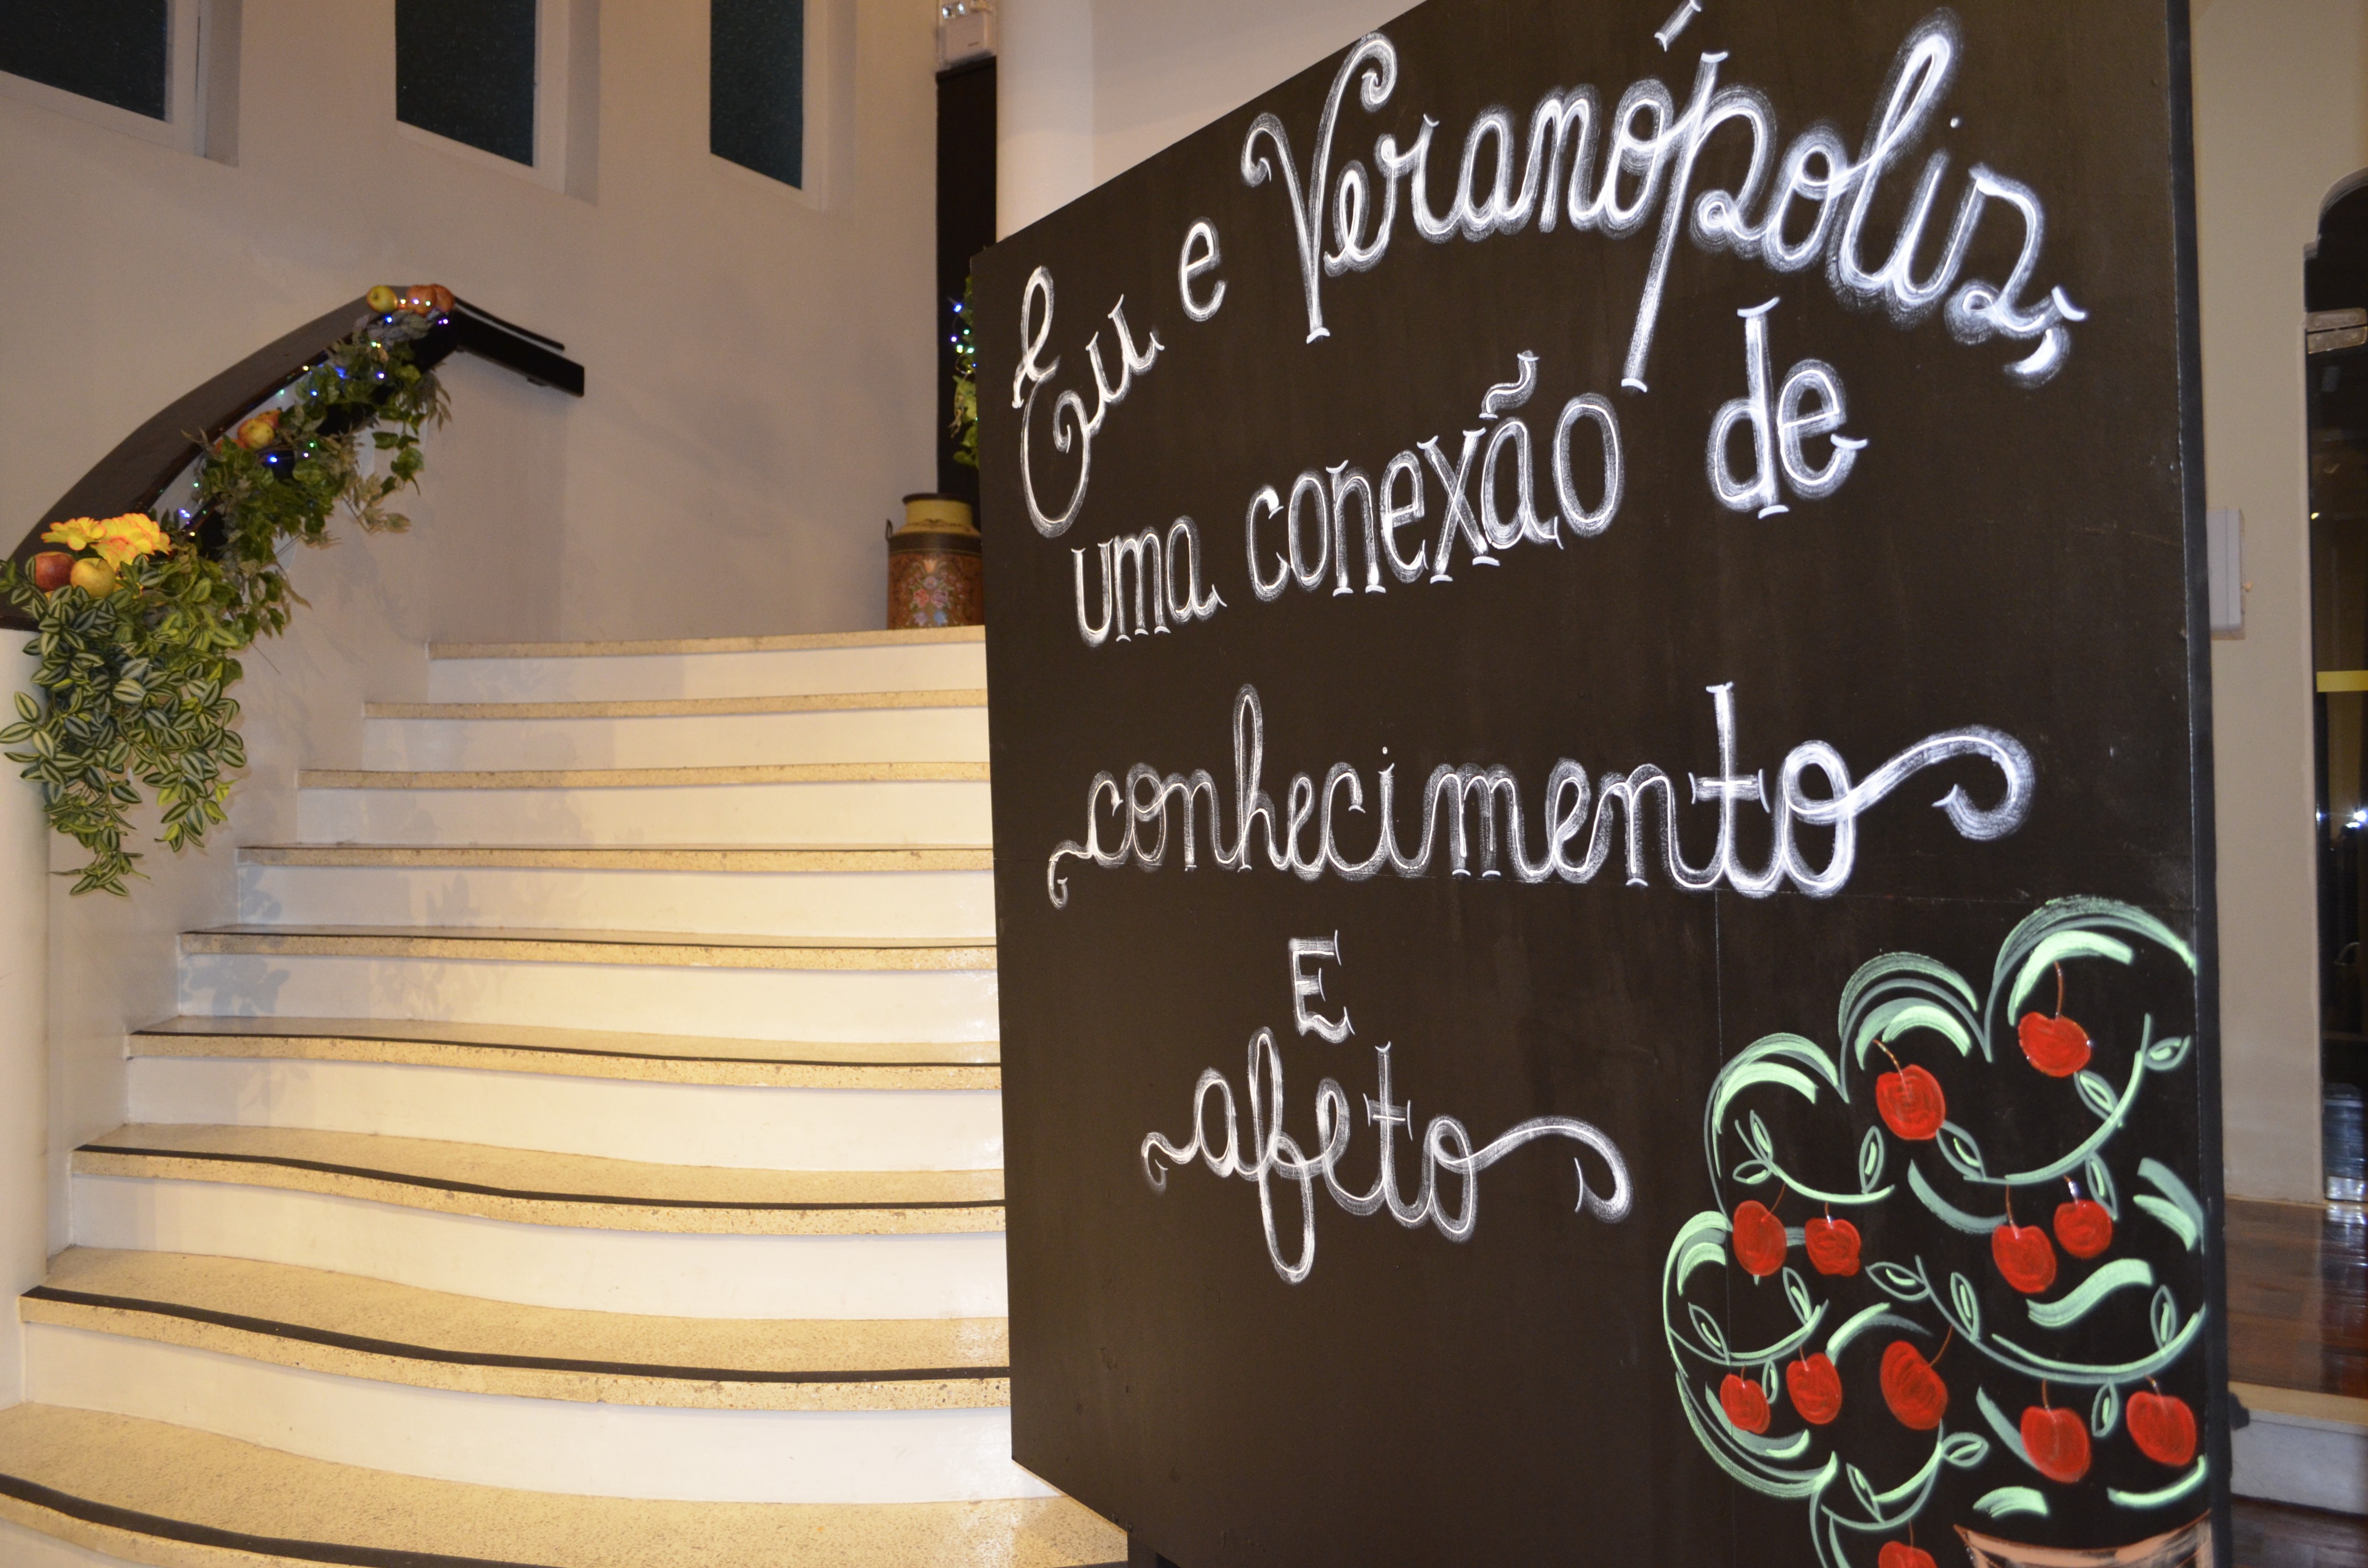 Eu e Veranópolis,
uma conexão de
conhecimento
E
afeto